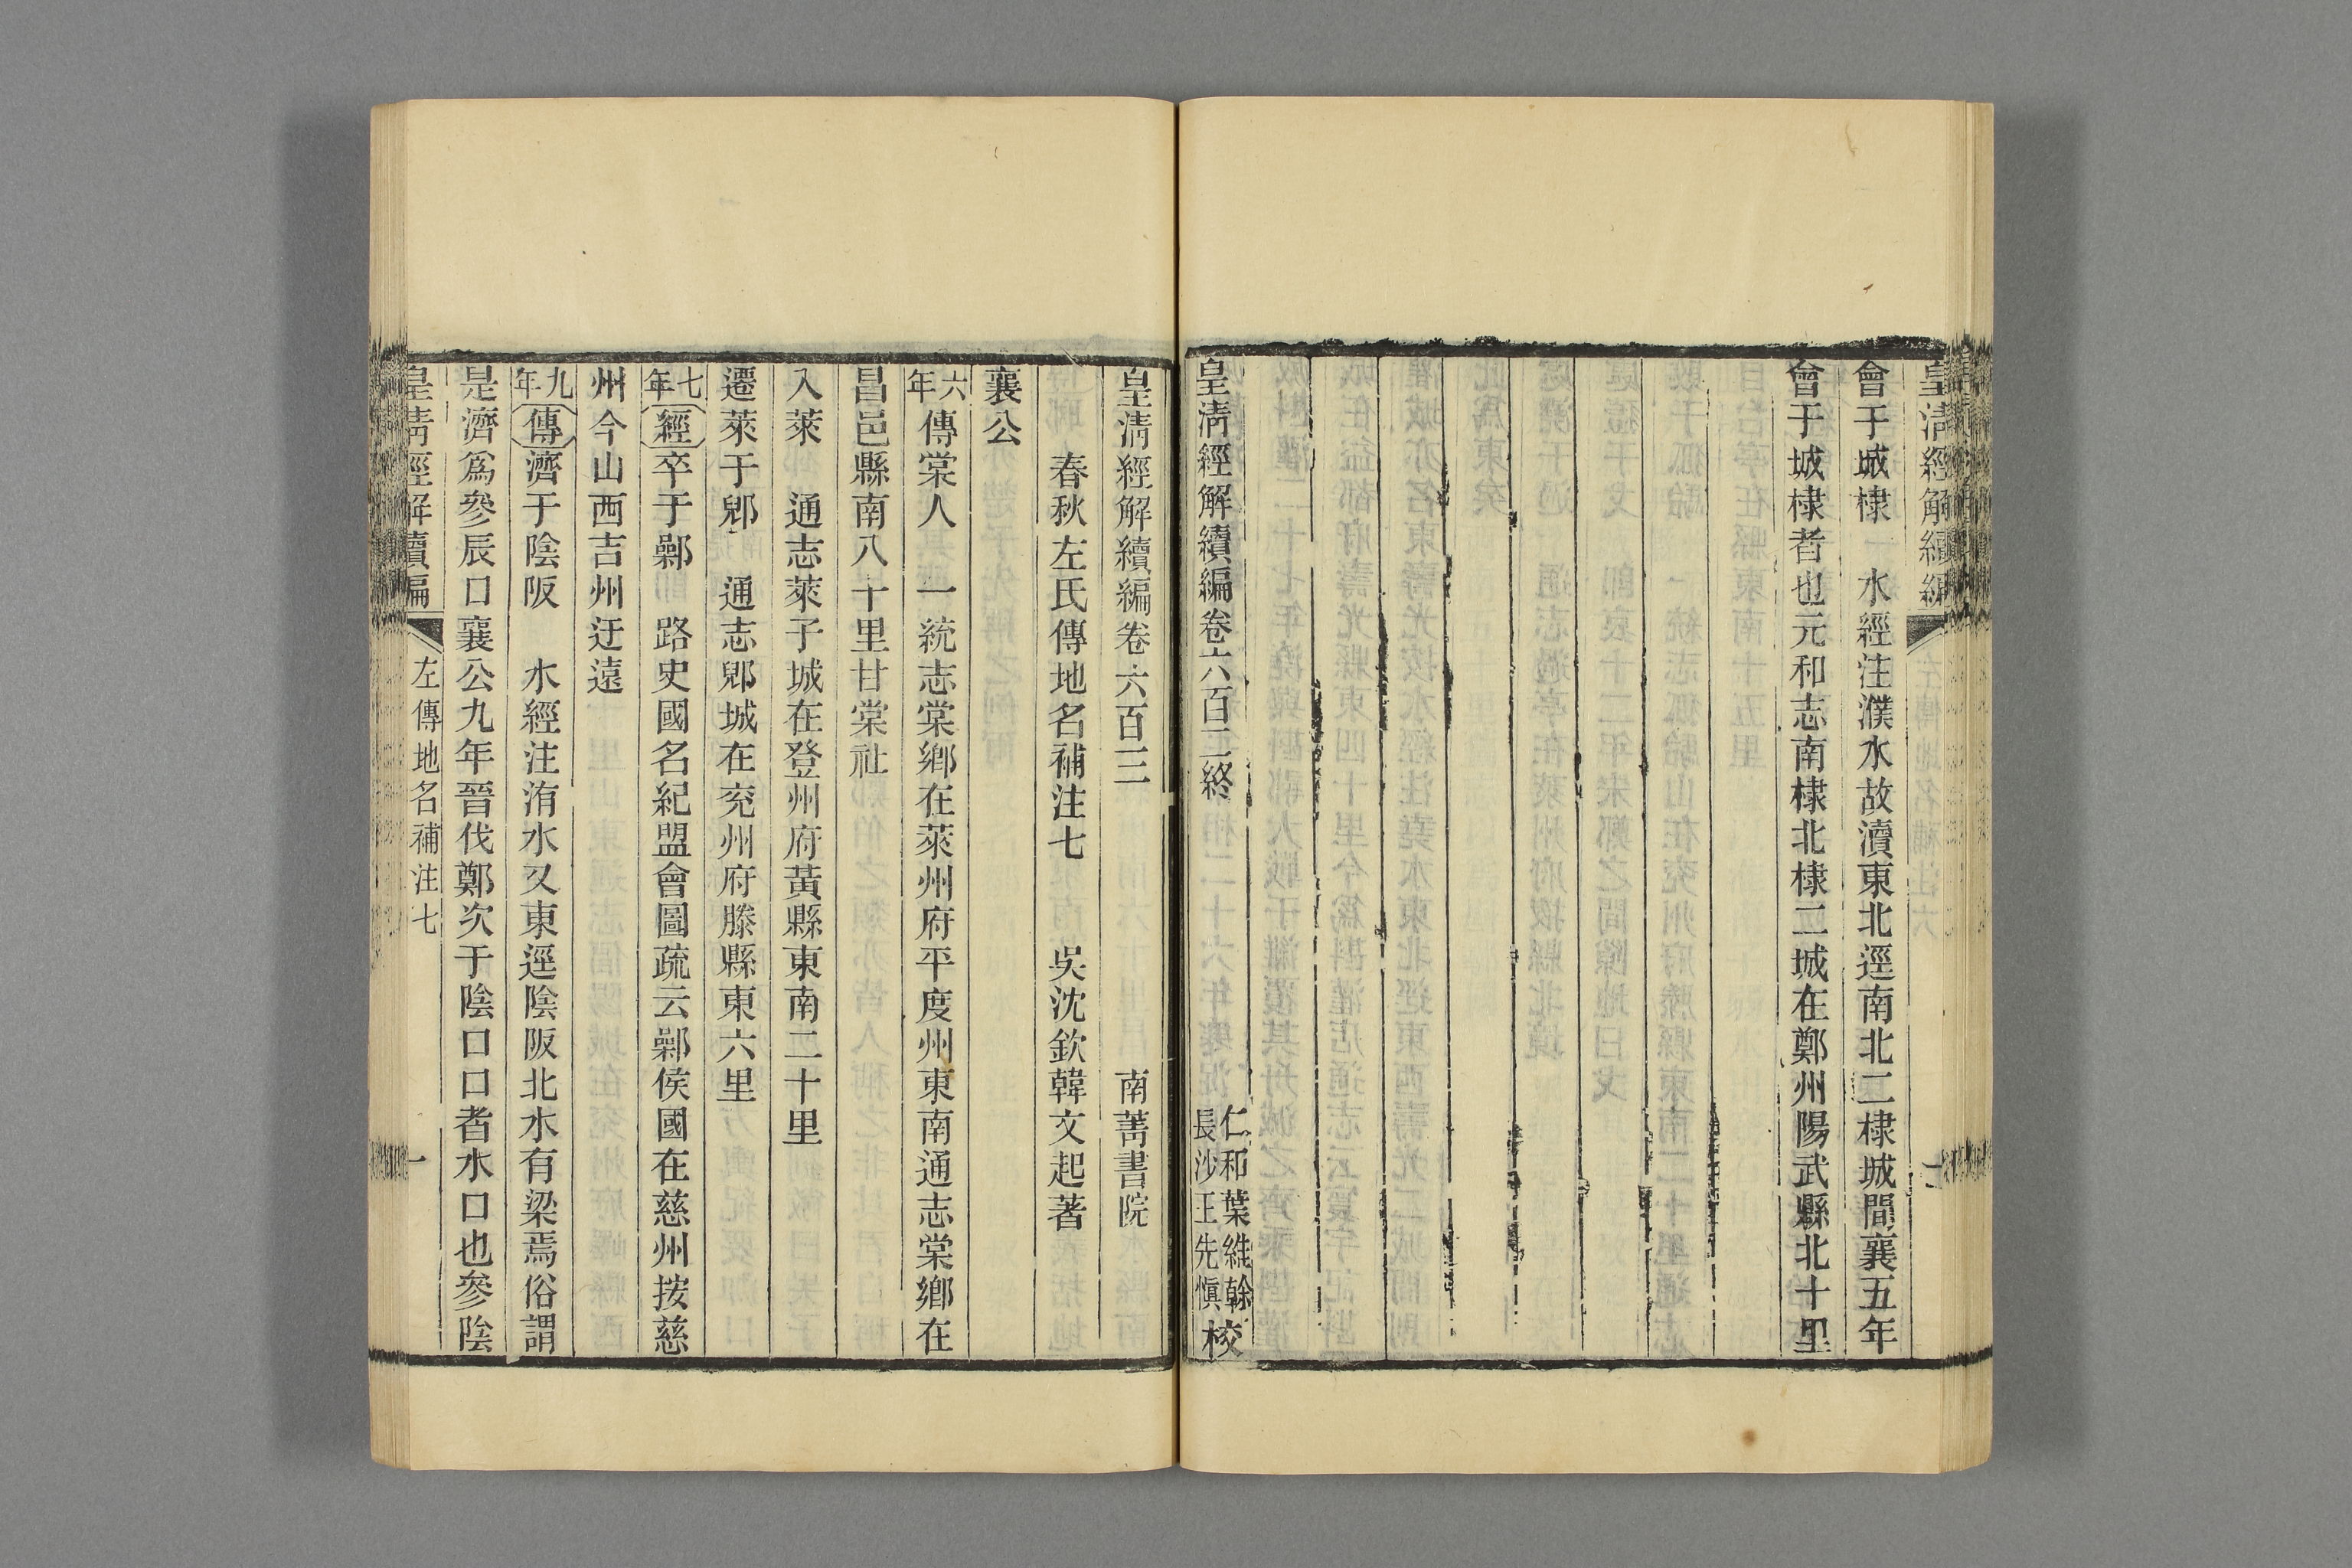 皇淸經解續編
會于城棣　水經注濮水故瀆東北逕南北二棣城間襄五年
會于城棣者也元和志南棣北棣二城在鄭州陽武縣北十里
皇淸經解續編卷六百二終
仁和葉維幹
長沙王先愼
校
皇淸經解續編卷六百三　南菁書院
春秋左氏傳地名補注七　吳沈欽韓文起著
襄公
六年傳棠人　一統志棠鄉在萊州府平度州東南通志棠鄉在
昌邑縣南八十里甘棠社
入萊　通志萊子城在登州府黃縣東南二十里
遷萊于郳　通志郳城在兖州府滕縣東六里
七年經卒于鄵　路史國名紀盟會圖疏云鄵侯國在慈州按慈
州今山西吉州迂遠
九年傳濟于陰阪　水經注洧水又東逕陰阪北水有梁焉俗謂
是濟爲參辰口襄公九年晉伐鄭次于陰口口者水口也參陰
皇淸經解續編　左傳地名補注七　一